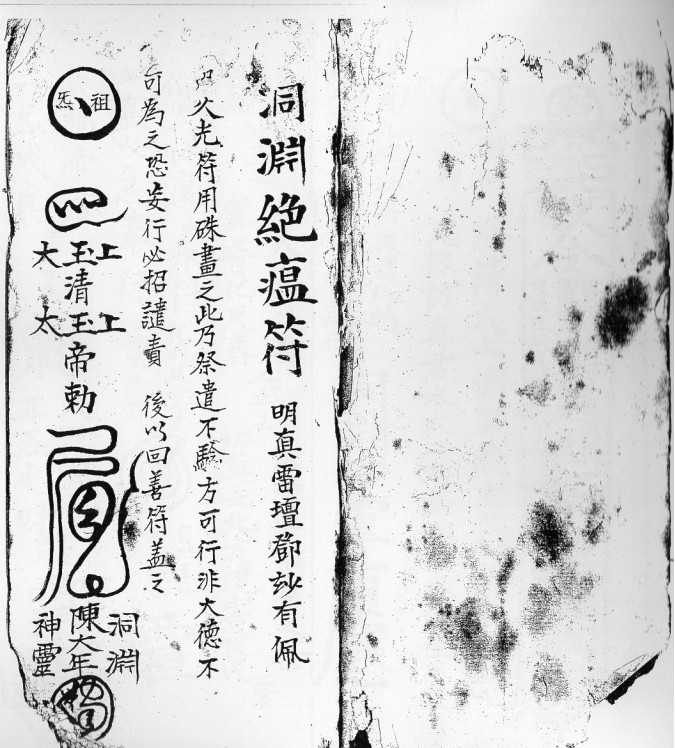 洞淵絶瘟符 明真雷壇鄧玅有佩
久光符用硃畫之此乃祭遣不驗方可行非大德不
可為之恐妄行必招譴責 後以回善符蓋之
祖炁
上玉大
清
上玉太
帝勅
洞淵
陳大年
神靈